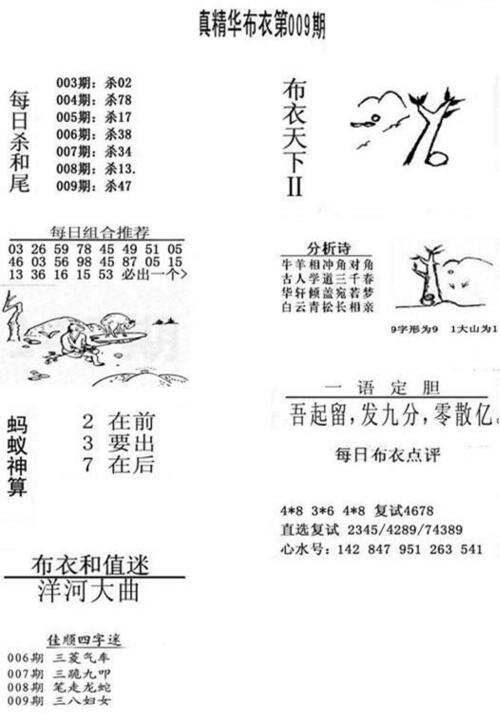 真精华布衣第009期
每日杀和尾
003期：杀02
004期：杀78
005期：杀17
006期：杀38
007期：杀34
008期：杀13.
009期：杀47
布衣天下II
每日组合推荐
03 26 59 78 45 49 51 05
46 03 56 98 45 87 05 15
13 36 16 15 53 必出一个>
分析诗
牛羊相冲角对角
古人学道三千春
华轩倾盖宛若梦
白云青松长相亲
9字形为9 1大山为1
蚂蚁神算
2 在前
3 要出
7 在后
一语定胆
吾起留，发九分，零散亿。
每日布衣点评
4*8 3*6 4*8 复试4678
直选复试 2345/4289/74389
心水号：142 847 951 263 541
布衣和值迷
洋河大曲
佳顺四字迷
006期 三菱气车
007期 三跪九叩
008期 笔走龙蛇
009期 三八妇女